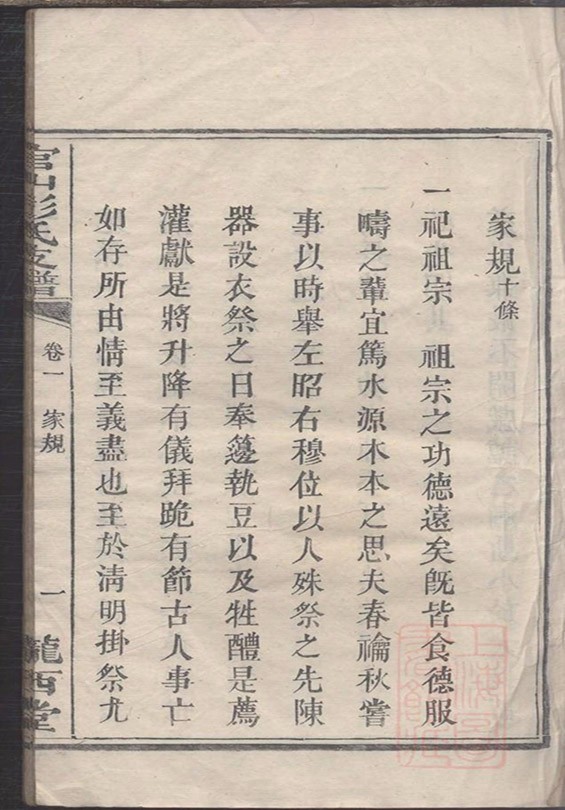 家規十條
一祀祖宗　祖宗之功德遠矣旣皆食德服
疇之輩宜篤水源木本之思夫春禴秋嘗
事以時舉左昭右穆位以人殊祭之先陳
器設衣祭之日奉籩執豆以及牲醴是薦
灌獻是將升降有儀拜跪有節古人事亡
如存所由情至義盡也至於淸明掛祭尤
彭氏支譜
卷一　家規
一
隴西堂